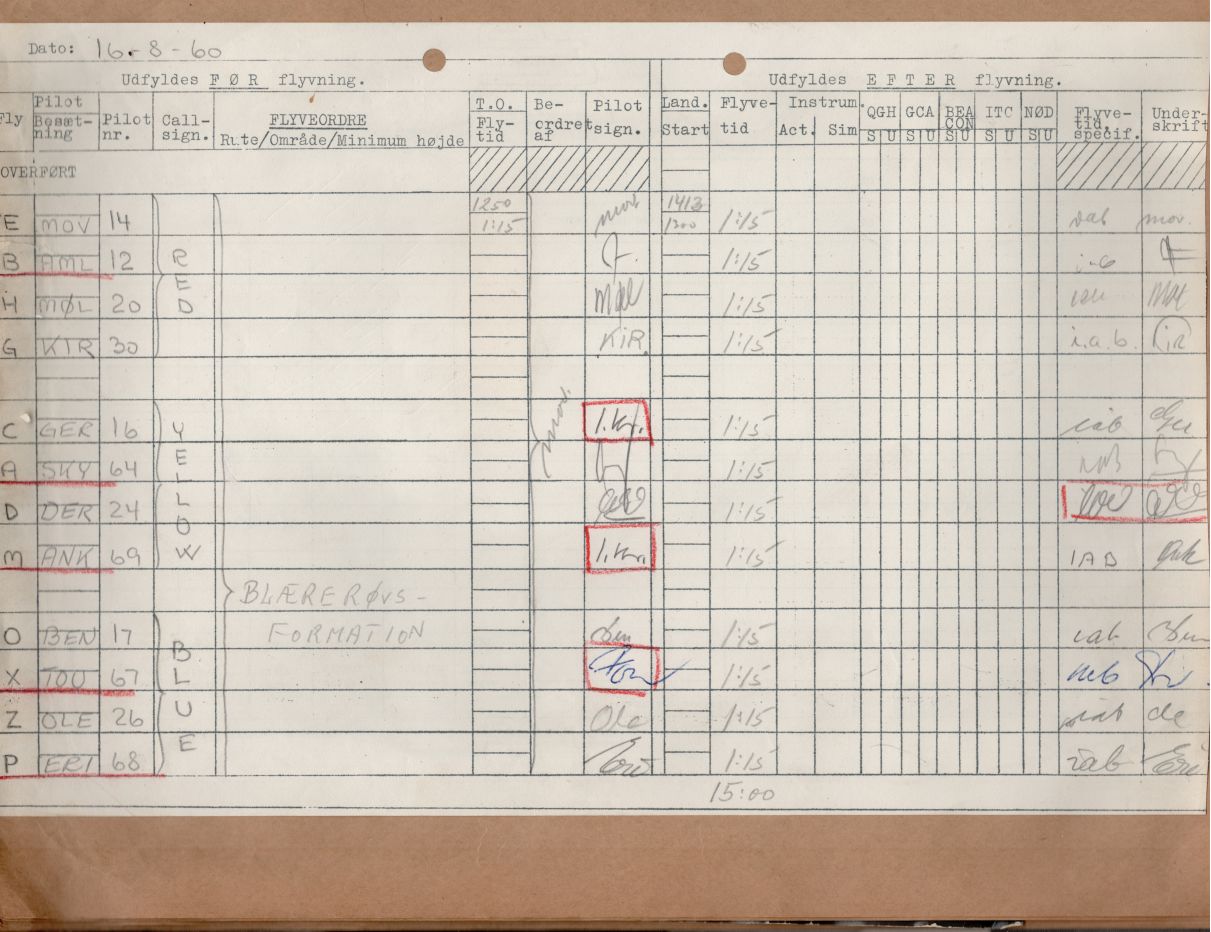 Dato: 16-8-60
Udfyldes FØR flyvning. Udfyldes EFTER flyvning.
Fly Pilot Besæt-ning Pilot nr. Call-sign. FLYVEORDRE Rute/Område/Minimum højde T.O. Fly-tid Be-ordret af Pilot sign. Land. Start Flyve-tid Instrum. Act. Sim QGH S U GCA S U BEACON S U ITC S U NØD S U Flyve-tid. specif. Under-skrift
OVERFØRT
RED
E MOV 14 1250 1:15 mov. 1413 1300 1:15 mov.
B AML 12 1:15
H MØL 20 Møl 1:15 Møl
G KIR 30 KiR. 1:15 i.a.b. KiR
mov.
YELLOW
C GER 16 1.Kr. 1:15 iab Ger
A SKY 64 1:15
D DER 24 1:15
M ANK 69 1.Kr. 1:15 IAB Ank
BLÆRERØVS-
FORMATION
BLUE
O BEN 17 Ben 1:15 iab Ben
X TOU 67 Tou 1:15
Z OLE 26 Ole 1:15 iab Ole
P ERI 68 Eri 1:15 iab Eri
15:00